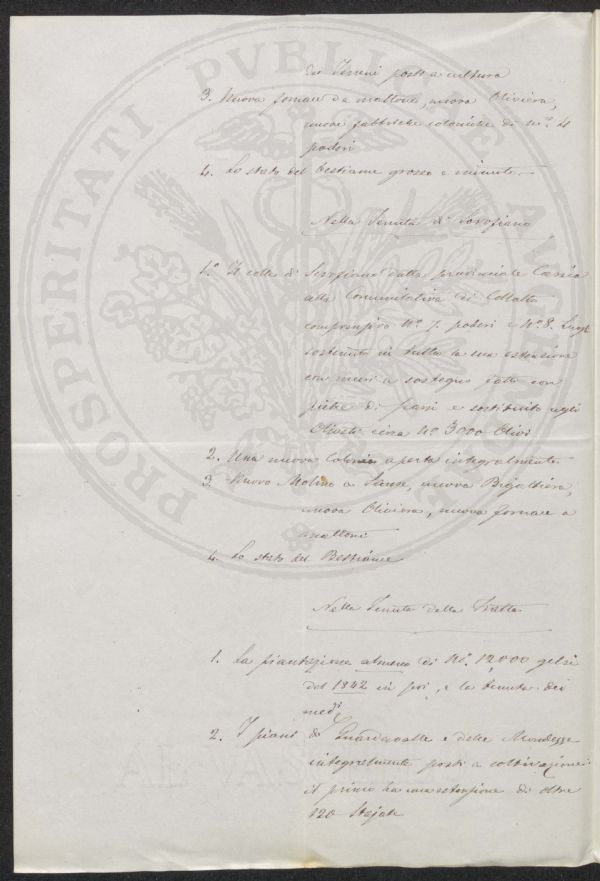 dei Terreni posti a cultura
3. Nuova fornace da mattone, nuova Oliviera,
nuove fabbriche coloniche di N.º 4
poderi
4. Lo stato del bestiame grosso e minuto
Nella Tenuta di Serofiano
1.º Il colle di Serofiano dalla provinciale Cassia
alla Comunitativa di Collalto
comprensivo Nº 7. poderi e Nº 8. Luoghi
sostenuto in tutta la sua estensione
con muri a sostegno fatti con
pietre di sassi e sostituito agli
Oliveti circa Nº 3000 Olivi
2. Una nuova Colonia aperta integralmente
3. Nuovo Molino a Sanse, nuova Bigattiera,
nuova Oliviera, nuova fornace a
mattoni
4. Lo stato del Bestiame
Nella Tenuta della Fratta
1. La piantazione almeno di Nº. 12,000 gelsi
dal 1842 in poi, e la tenuta dei
medi
2. I piani di Guardavalle e delle
integralmente posti a coltivazione
il primo ha una estensione di oltre
120 Stajate
PROSPERITATI PVBLICAE AVGENDAE